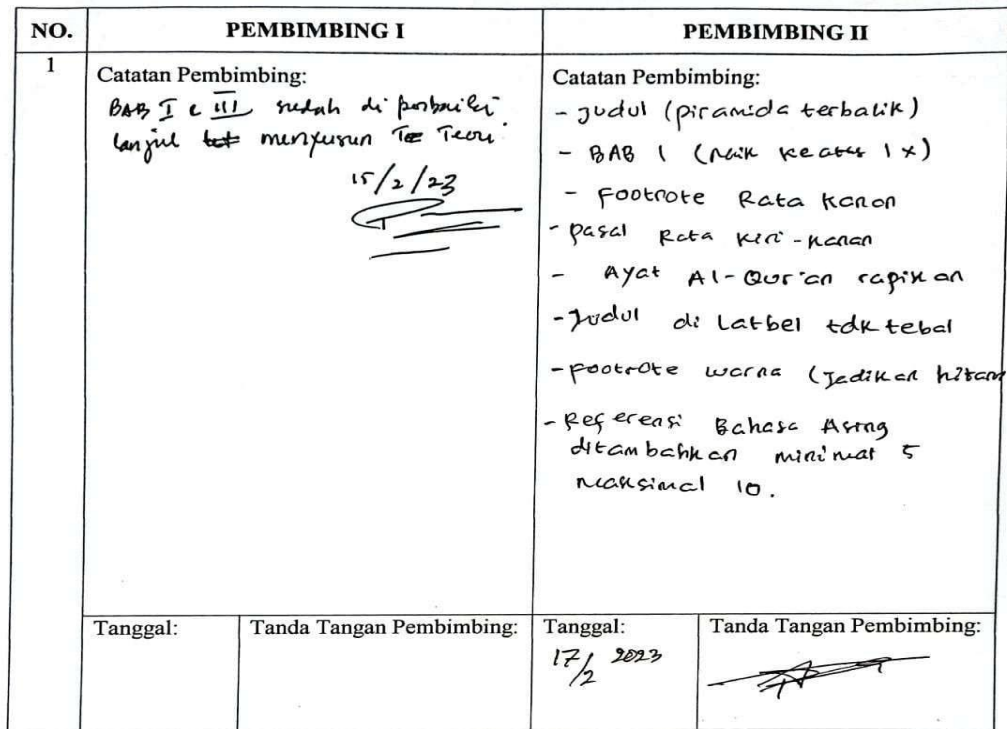 NO.
PEMBIMBING I
PEMBIMBING II
1
Catatan Pembimbing:
BAB I & III sudah di perbaiki
lanjut menyusun Teori.
15/2/23
Catatan Pembimbing:
- Judul (piramida terbalik)
- BAB 1 (naik keatas 1x)
- Footnote Rata kanan
- pasal Rata kiri-kanan
- Ayat Al-Qur'an rapikan
- Judul di Latbel tdk tebal
- Footnote warna (Jadikan hitam
- Referensi Bahasa Asing
ditambahkan minimal 5
maksimal 10.
Tanggal:
Tanda Tangan Pembimbing:
Tanggal:
17/2 2023
Tanda Tangan Pembimbing: